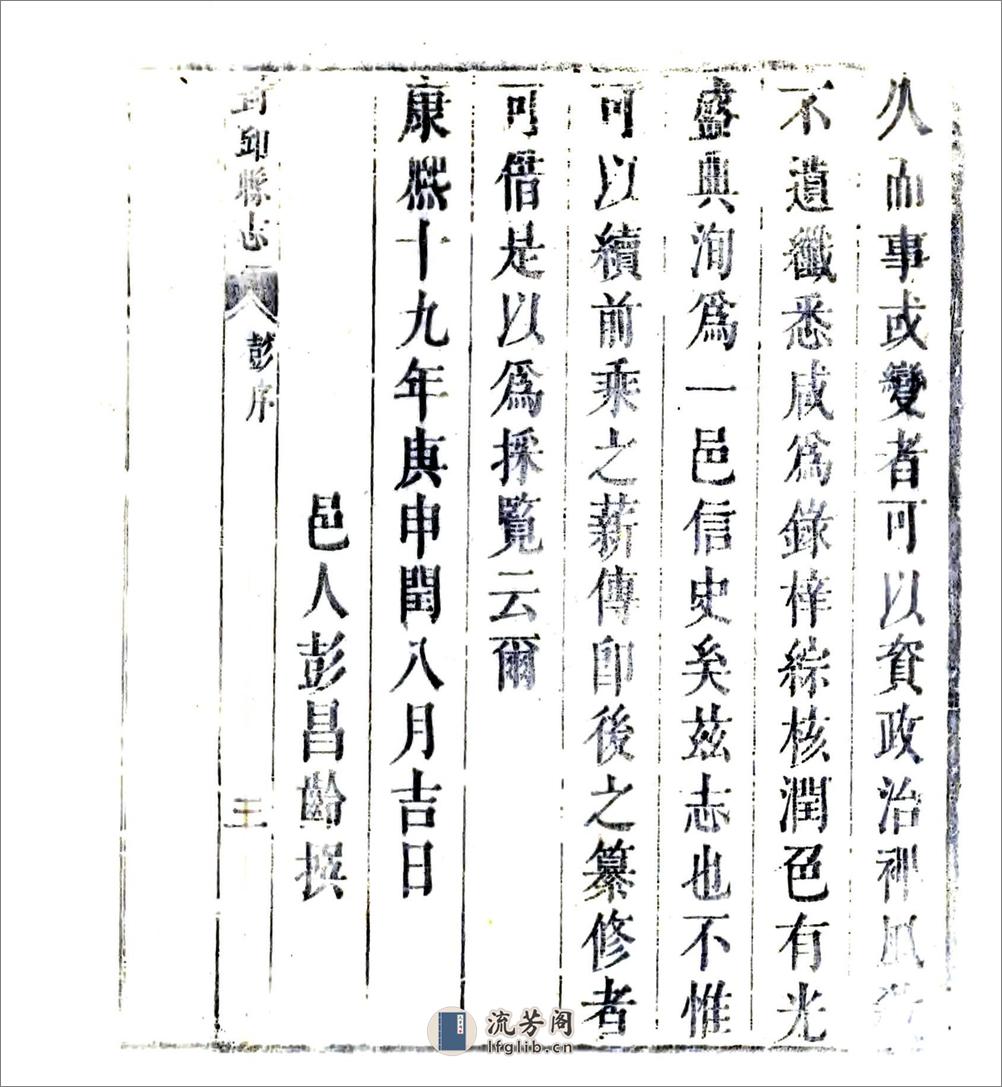 久而事或變者可以資政治裨風
不遺纖悉咸爲錄梓綜核潤色有光
盛典洵爲一邑信史矣茲志也不惟
可以續前乘之薪傳卽後之纂修者
可借是以爲採覽云爾
康熙十九年庚申閏八月吉日
邑人彭昌齡撰
封邱縣志
彭序
三
流芳阁
lfglib.cn